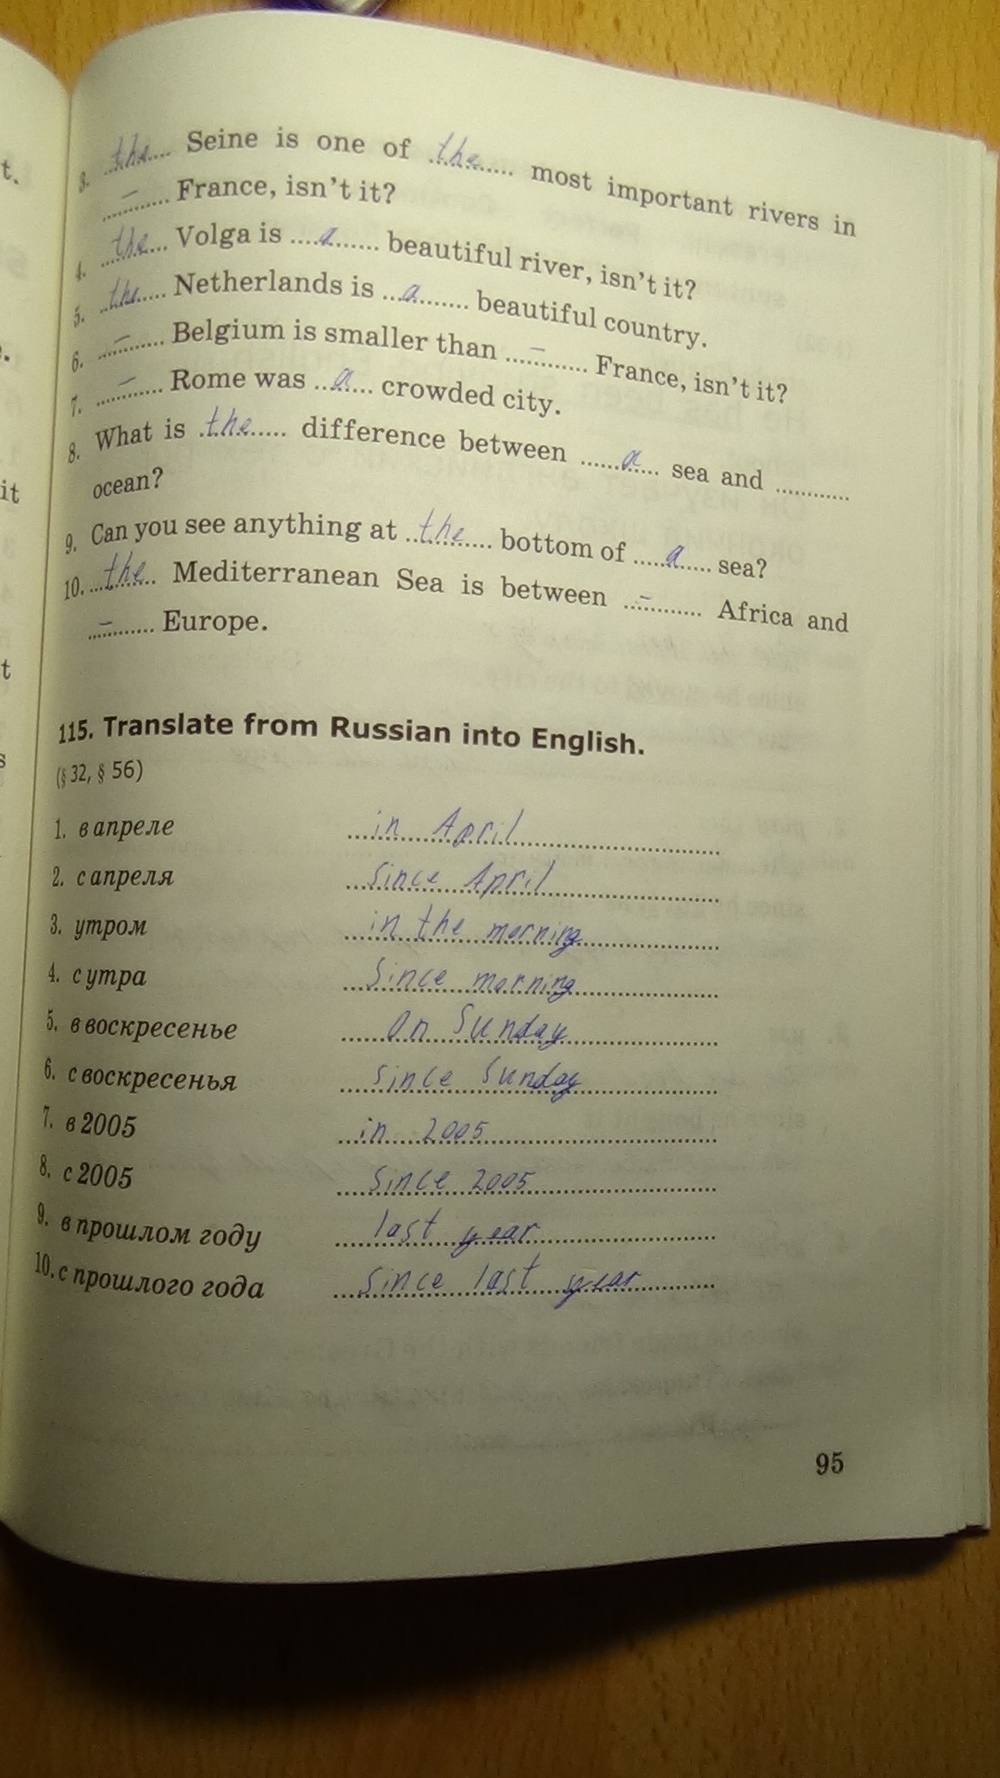 3. the Seine is one of the most important rivers in
– France, isn't it?
4. the Volga is a beautiful river, isn't it?
5. the Netherlands is a beautiful country.
6. – Belgium is smaller than – France, isn't it?
7. – Rome was a crowded city.
8. What is the difference between a sea and ............
ocean?
9. Can you see anything at the bottom of a sea?
10. the Mediterranean Sea is between – Africa and
– Europe.
115. Translate from Russian into English.
(§ 32, § 56)
1. в апреле in April
2. с апреля since April
3. утром in the morning
4. с утра since morning
5. в воскресенье on Sunday
6. с воскресенья since Sunday
7. в 2005 in 2005
8. с 2005 since 2005
9. в прошлом году last year
10. с прошлого года since last year
95
t.
e.
it
t
s